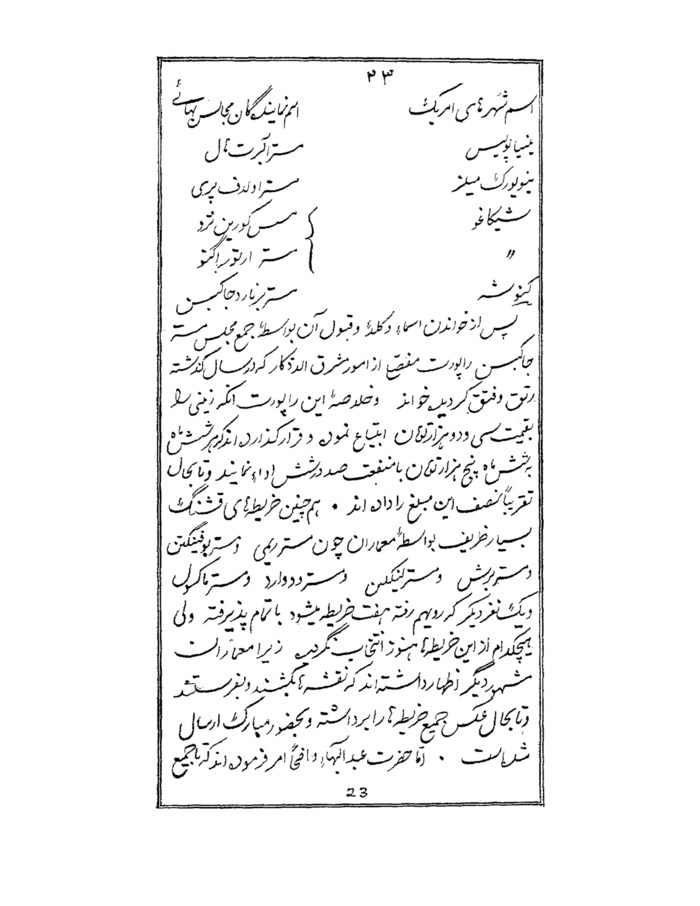 ۲۳
اسم شهرهای امریک اسم نمایندگان مجالس بهائی
مینیاپولیس مستر آلبرت هال
نیویورک میلز
شیکاغو مس کورین ترو
〃 مستر ارثور اگنو
کنوشه مستر برنارد جاکبسن
پس از خواندن اسماء وکلاء و قبول آن بواسطهٔ جمع مجلس مستر
جاکبسن راپورت مفصّلی از امور مشرق الاذکار که در سال گذشته
رتق و فتق گردید خواند و خلاصهٔ این راپورت آنکه زمینی را
بقیمت سی و دو هزار تومان ابتیاع نموده و قرار گذارده‌اند که هر شش ماه
به شش ماه پنج هزار تومان با منفعت صد درشش اداء نمایند و تا بحال
تقریباً نصف این مبلغ را داده اند . هم چنین خریطه‌های قشنگ
بسیار ظریف بواسطهٔ معماران چون مستر ریمی و مستر بوفینگتن
و مستر برش و مستر لنیکلین و مستر وودوارد و مستر ماکول
و یک نفر دیگر که رویهم رفته هفت خریطه میشود باتمام پذیرفته ولی
هیچکدام از این خریطه‌ها هنوز انتخاب نگردیده زیرا معماران
شهور دیگر اظهار داشته‌اند که نقشه‌ها بکشند و بفرستند
و تا بحال عکس جمیع خریطه‌ها را برداشته و بحضور مبارک ارسال
شده است . امّا حضرت عبدالبهاء واضحاً امر فرموده‌اند که تا جمیع
23